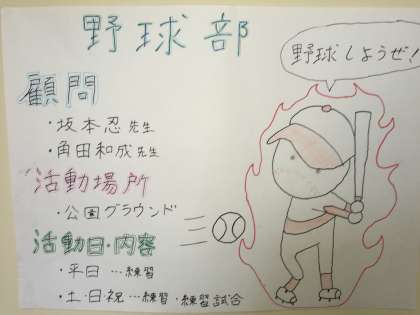 野球部
野球しようぜ!
顧問
・坂本忍先生
・角田和成先生
活動場所
・公園グラウンド
活動日・内容
・平日…練習
・土・日祝…練習・練習試合